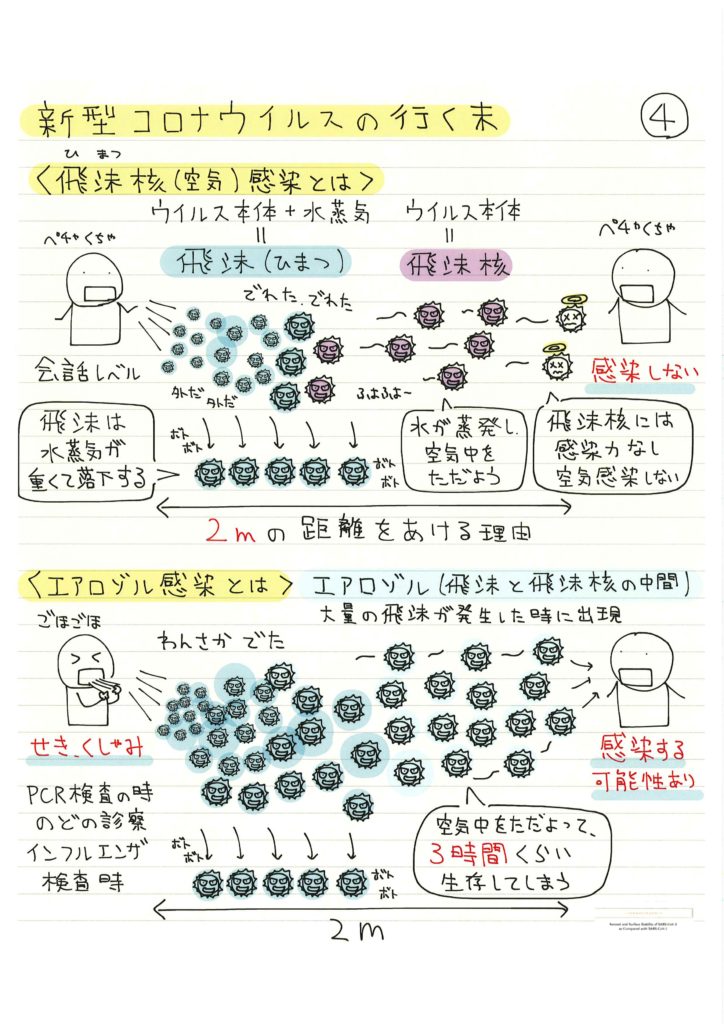 新型コロナウイルスの行く末
④
ひ まつ
〈飛沫核(空気)感染とは〉
ウイルス本体+水蒸気
ウイルス本体
=
=
ペチャくちゃ
飛沫(ひまつ)
飛沫核
ペチャくちゃ
でれた、でれた
会話レベル
外だ
外だ
ふよふよ~
感染しない
飛沫は
水蒸気が
重くて落下する
ボト
ボト
ボト
ボト
水が蒸発し、
空気中を
ただよう
飛沫核には
感染力なし
空気感染しない
2mの距離をあける理由
〈エアロゾル感染とは〉 エアロゾル(飛沫と飛沫核の中間)
大量の飛沫が発生した時に出現
ごほごほ
わんさか でた
せき、くしゃみ
感染する
可能性あり
PCR検査の時
のどの診察
インフルエンザ
検査時
ボト
ボト
ボト
ボト
空気中をただよって、
3時間くらい
生存してしまう
2m
Aerosol and Surface Stability of SARS-CoV-2
as Compared with SARS-CoV-1